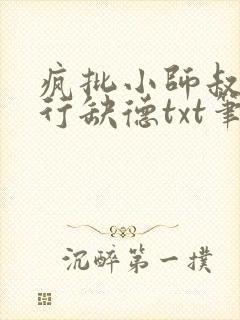 疯批小師叔
行缺德txt筆
沉醉第一撲